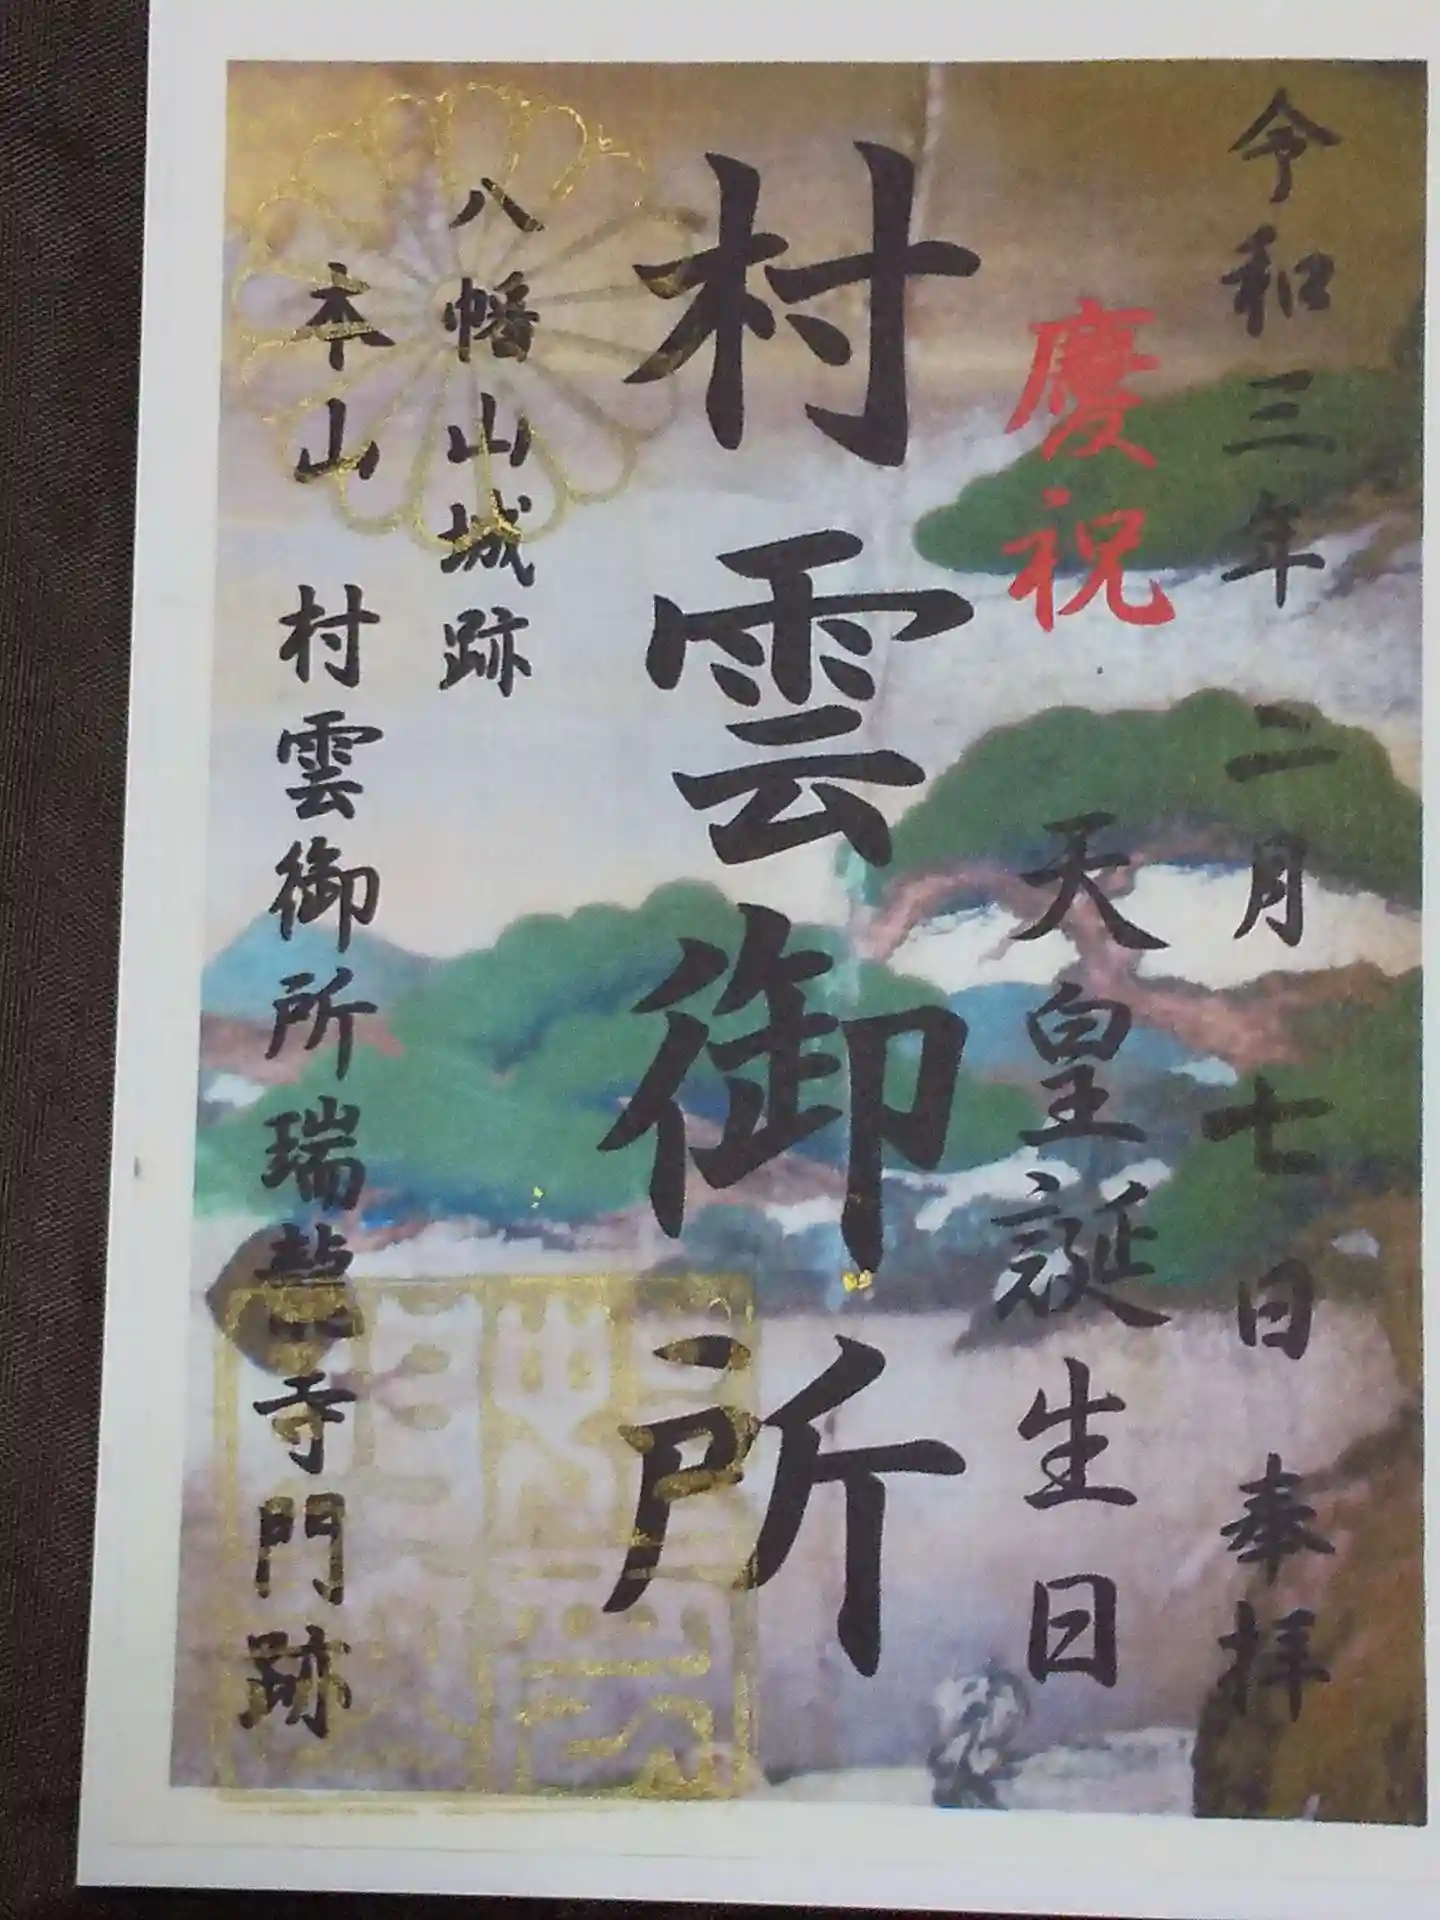 令和三年 二月 七日 奉拝
慶祝 天皇誕生日
村雲御所
八幡山城跡
本山 村雲御所瑞龍寺門跡